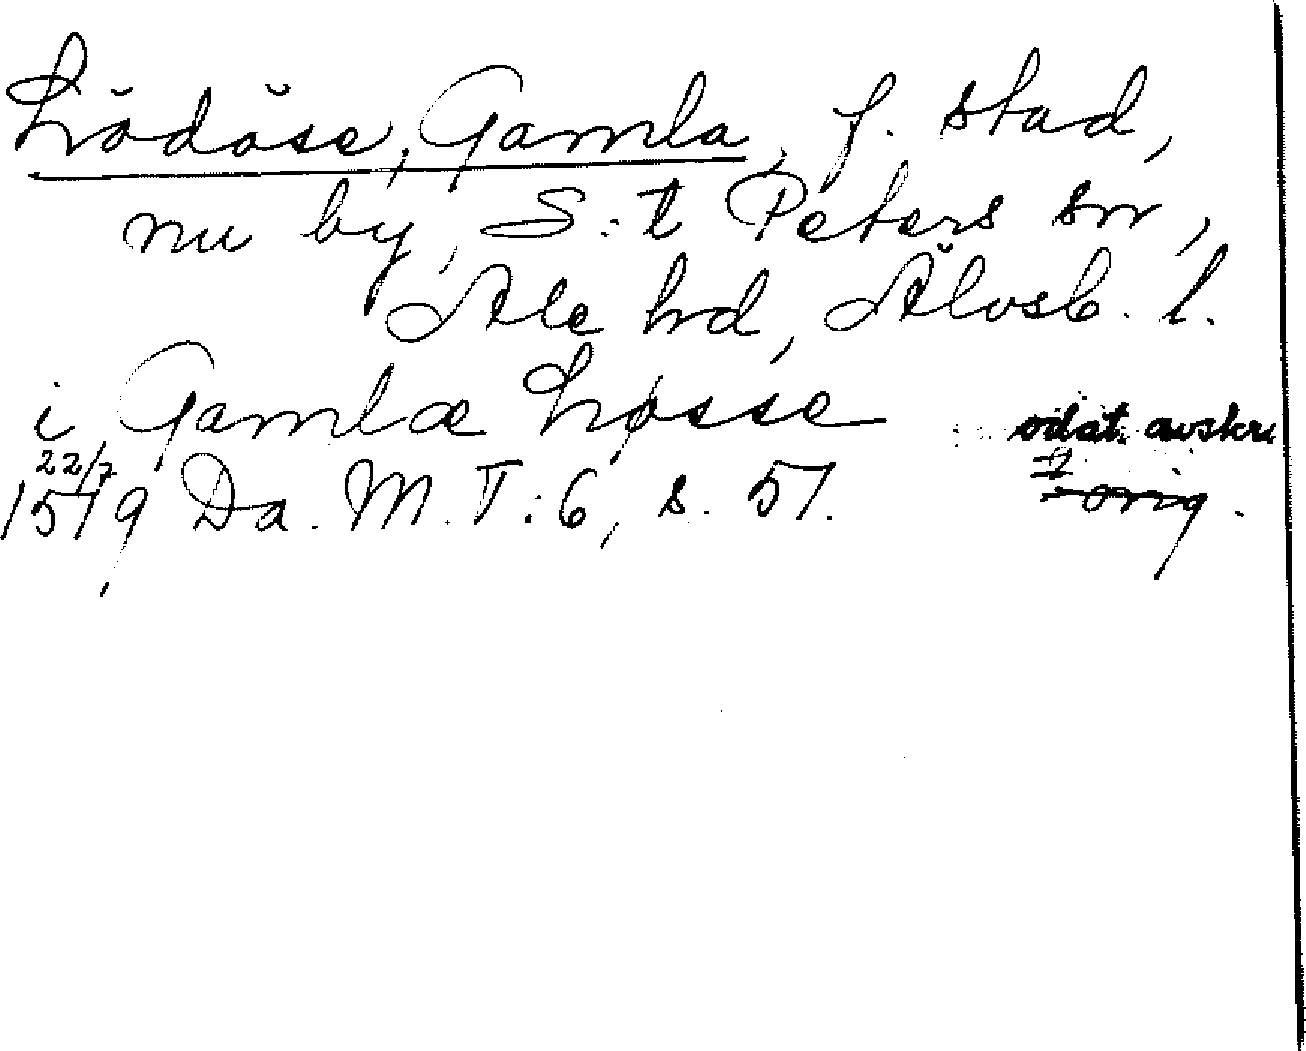 Lödöse, Gamla, f. stad,
nu by, S:t Peters sn,
Ale hd, Älvsb. l.
i Gamlæ Løsse odat. avskr
22/7
1519 Da. M. T: 6, s. 57. orig.